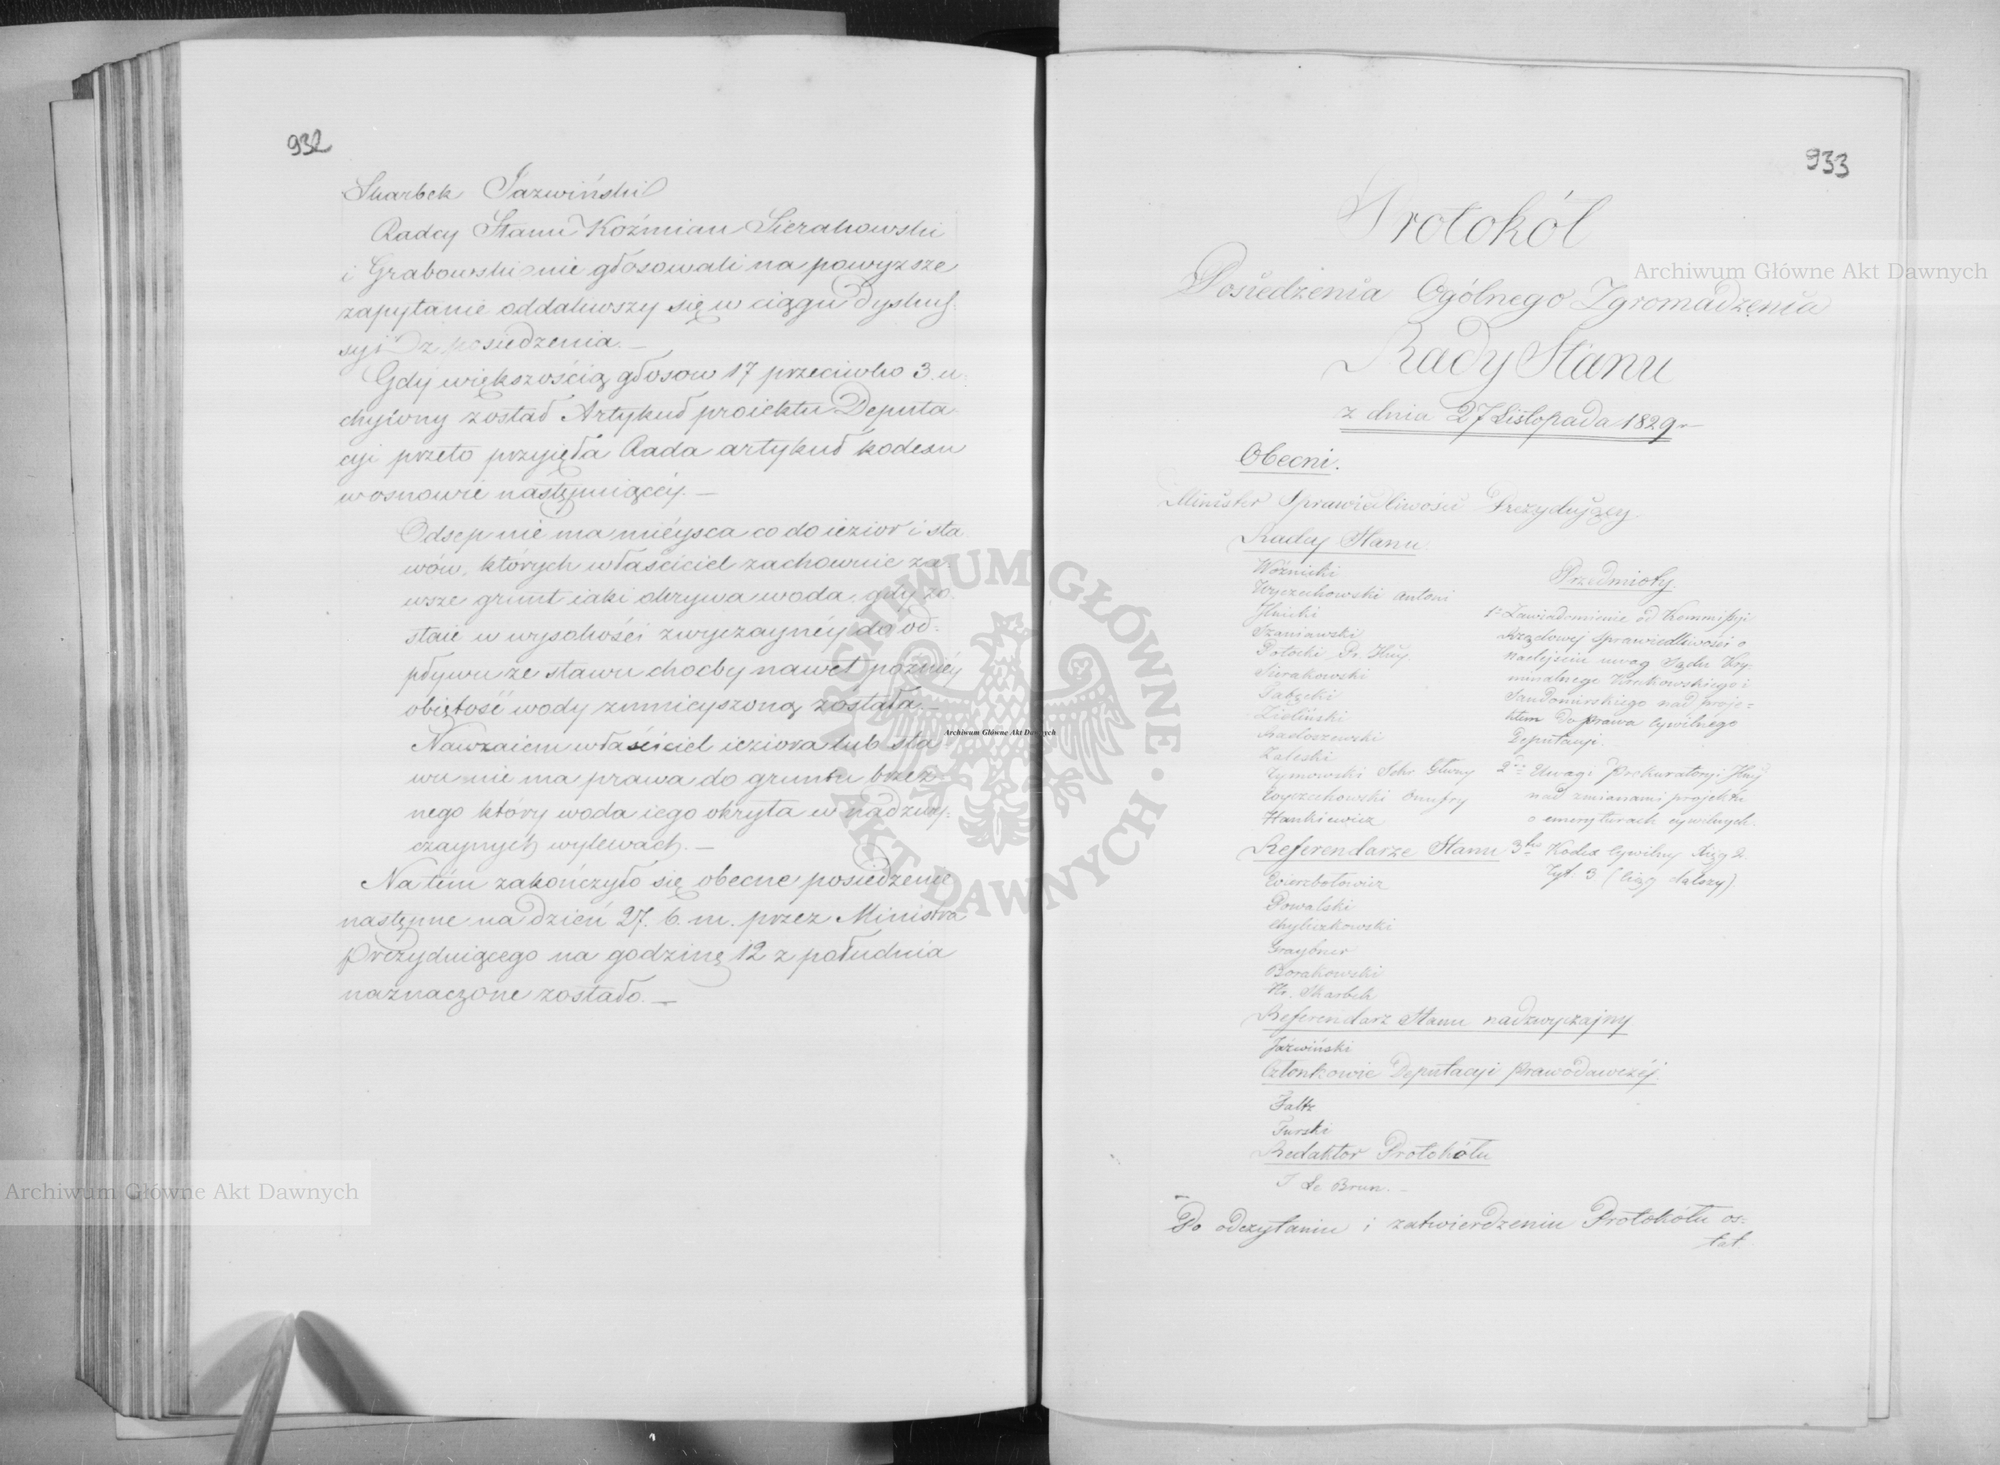 932
Skarbek Jazwiński
Radcy Stanu Koźmian Sierakowski
i Grabowski nie głosowali na powyższe
zapytanie oddaliwszy się w ciągu Dyskus-
syi z posiedzenia. —
Gdy większością głosow 17 przeciwko 3. u-
chylony został Artykuł proiektu Deputa
cyi przeto przyięła Rada artykuł kodexu
w osnowie następuiącéy. —
Odsep nie ma mieysca co do iezior i sta
wów, których właściciel zachowuie za-
wsze grunt iaki okrywa woda, gdy zo-
staie w wysokości zwyczaynéy do od-
pływu ze stawu choćby nawet poźniéy
obiętość wody zmnieyszoną została. —
Nawzaiem właściciel ieziora lub sta
wu nie ma prawa do gruntu brzeż-
nego który woda iego okryła w nadzwy-
czaynych wylewach. —
Na tém zakończyło się obecne posiedzenie
następne na dzień 27. b. m. przez Ministra
Prezyduiącego na godzinę 12 z południa
naznaczone zostało. —
933
Protokół
Posiedzenia Ogólnego Zgromadzenia
Rady Stanu
z dnia 27 Listopada 1829 r.
Obecni.
Minister Sprawiedliwości Prezydujący.
Radcy Stanu.
Woźnicki
Wyczechowski Antoni
Szaniawski
Potocki
Sierakowski
Zieliński
Radoszewski
Zaleski
Tymowski Sekr. Główny
Wyczechowski Onufry
Hankiewicz
Przedmioty.
1e Zawiadomienie od Kommissyi
Rządowej Sprawiedliwości o
nadejściu uwag Sądu Kry-
minalnego Krakowskiego i
Sandomirskiego nad proje-
ktem do prawa Cywilnego
Deputacyi.
2re Uwagi Prokuratoryi
nad zmianami projektu
o emeryturach cywilnych.
3tio Kodex Cywilny Xięg 2
Tyt 3 (Ciąg dalszy)
Referendarze Stanu
Wierzbołowicz
Powalski
Chyliczkowski
Graybner
Borakowski
Hr. Skarbek
Referendarz Stanu nadzwyczajny
Jaźwiński
Członkowie Deputacyi Prawodawczéj.
Faltz
Turski
Redaktor Protokółu
J Le Brun. —
Po odczytaniu i zatwierdzeniu Protokółu os-
tat
Archiwum Główne Akt Dawnych
Archiwum Główne Akt Dawnych
Archiwum Główne Akt Dawnych
ARCHIWUM GŁÓWNE
AKT DAWNYCH